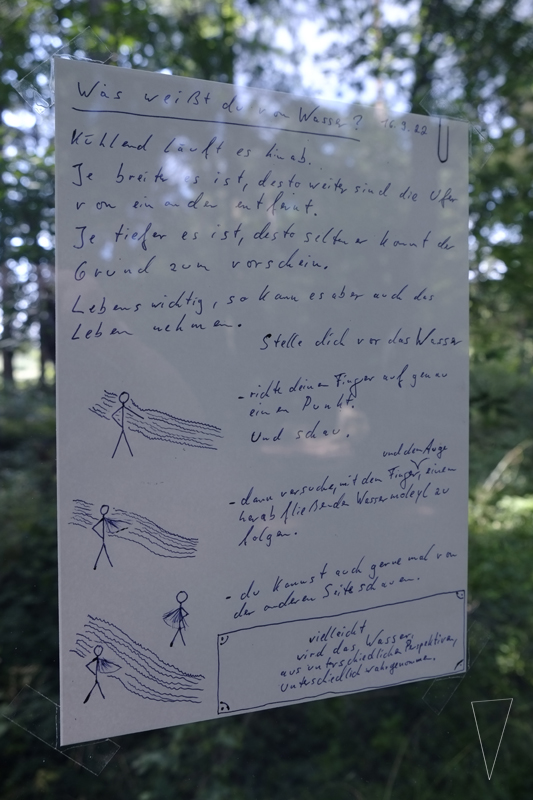 Was weißt du von Wasser? 16.9.22
Kühlend läuft es hinab.
Je breiter es ist, desto weiter sind die Ufer
von einander entfernt.
Je tiefer es ist, desto seltener kommt der
Grund zum vorschein.
Lebenswichtig, so kann es aber auch das
Leben nehmen.
Stelle dich vor das Wasser
- richte deinen Finger auf genau
einen Punkt.
Und schau.
und dem Auge
- dann versuche, mit dem Finger, einem
herabfließenden Wassermolekül zu
folgen.
- du kannst auch gerne mal von
der anderen Seite schauen.
vielleicht
wird das Wasser,
aus unterschiedlichen Perspektiven,
unterschiedlich wahrgenommen.